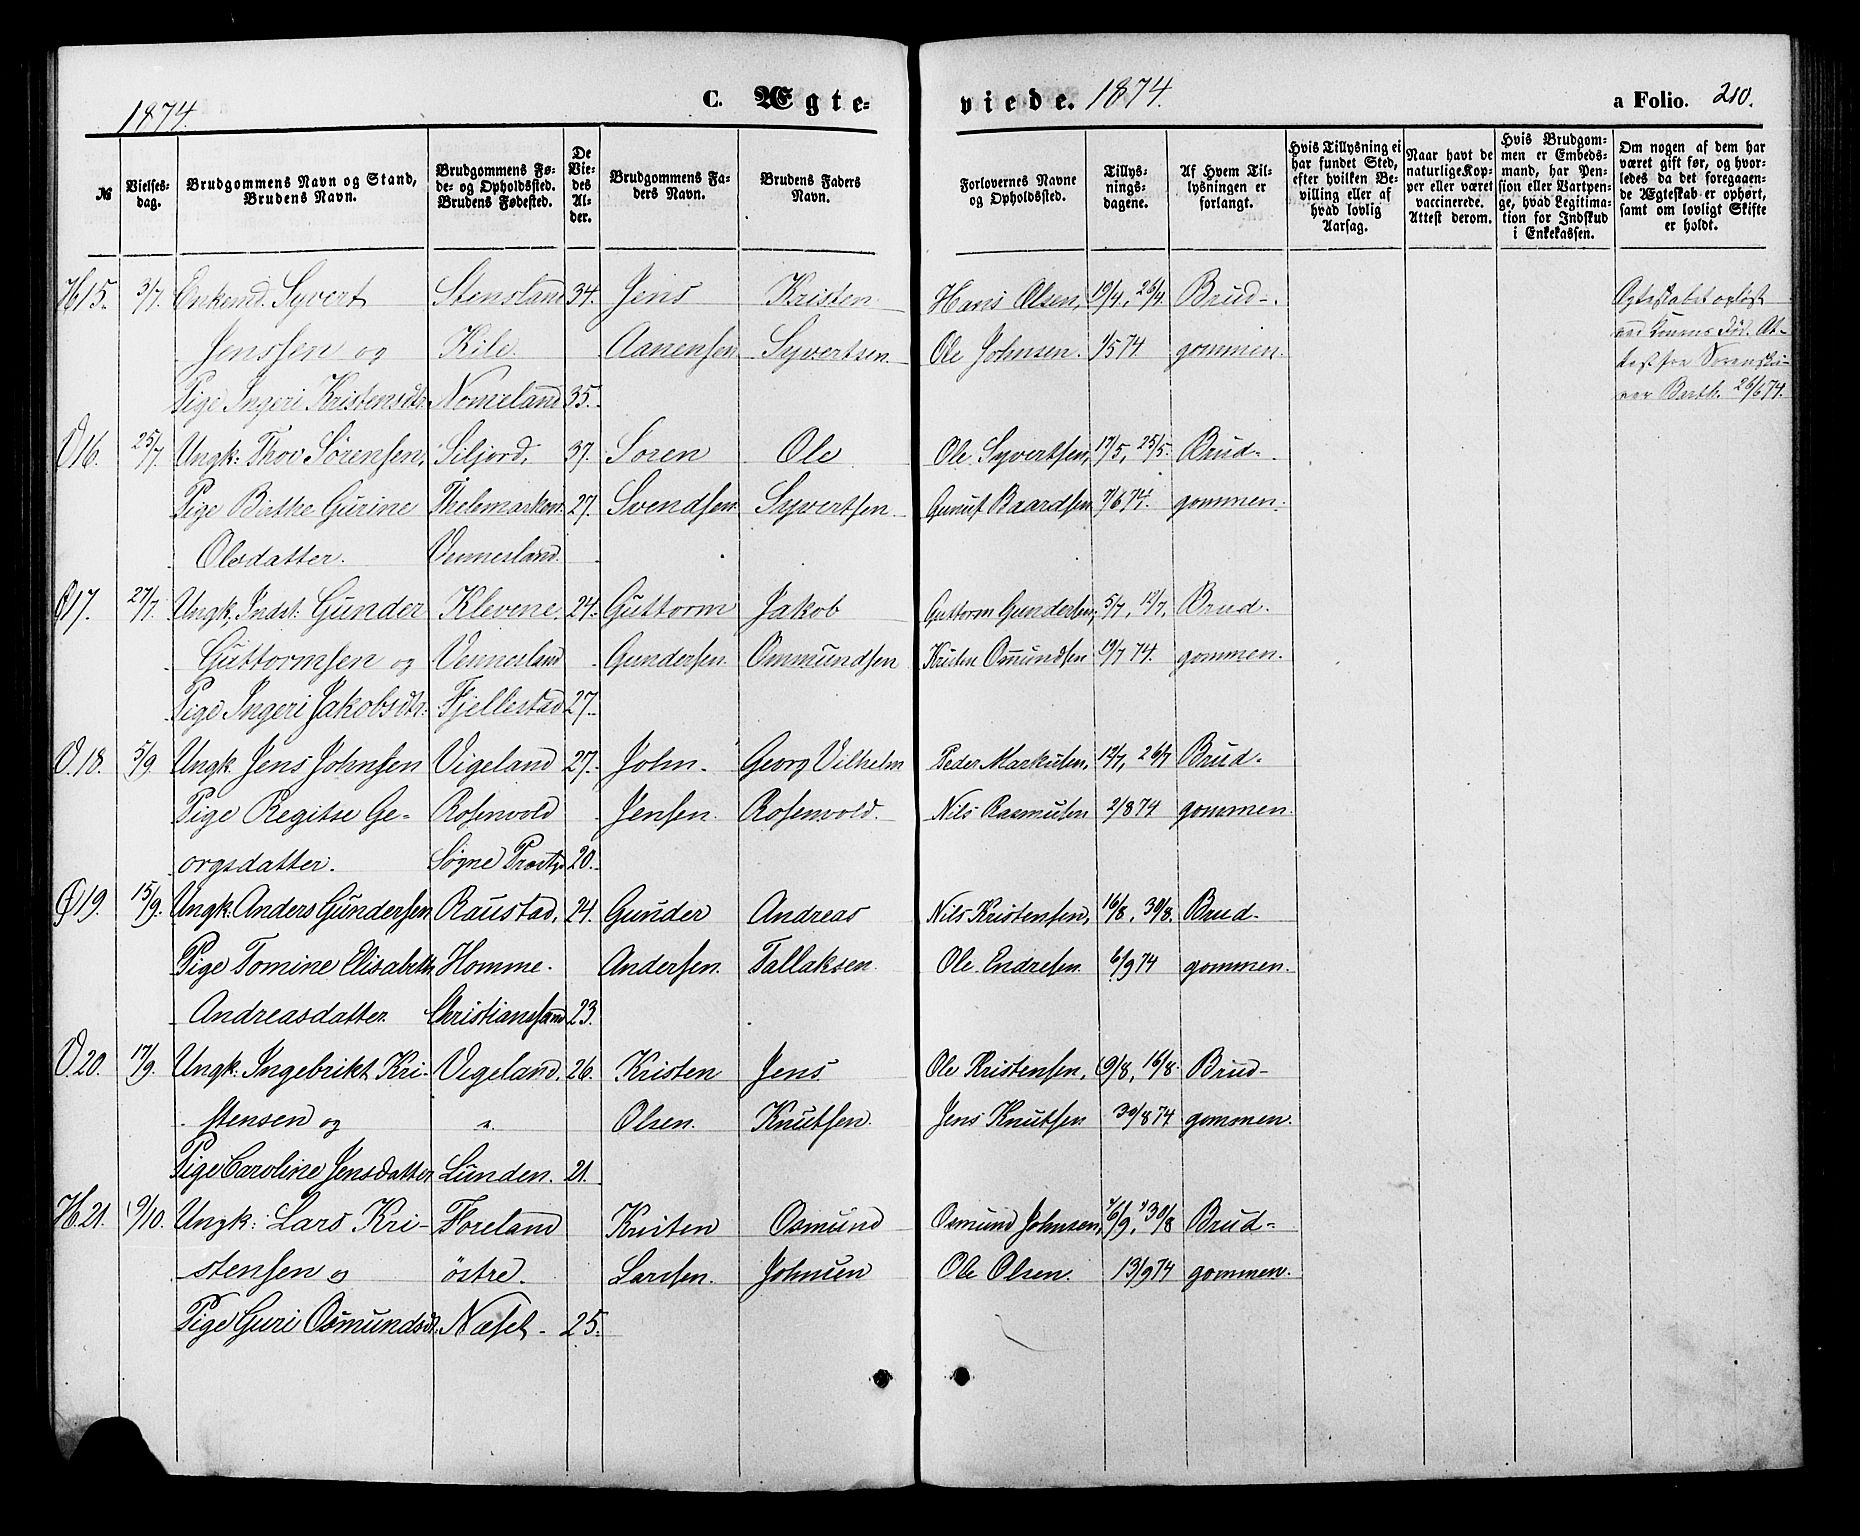 1874. C. Ægte-
viede. 1874. a Folio. 210.
№
Vielses-
dag.
Brudgommens Navn og Stand,
Brudens Navn.
Brudgommens Fø-
de- og Opholdssted.
Brudens Fødested.
De
Vie-
des
Al-
der.
Brudgommens Fa-
ders Navn.
Brudens Faders
Navn.
Forlovernes Navne
og Opholdssted.
Tillys-
nings-
dagene.
Af Hvem Til-
lysningen er
forlangt.
Hvis Tillysning ei
har fundet Sted,
efter hvilken Be-
villing eller af
hvad lovlig
Aarsag.
Naar havt de
naturlige Kop-
per eller været
vaccinerede.
Attest derom.
Hvis Brudgom-
men er Embeds-
mand, har Pen-
sion eller Vartpen-
ge, hvad Legitima-
tion for Indskud
i Enkekassen.
Om nogen af dem har
været gift før, og hvor-
ledes da det foregaaen-
de Ægteskab er ophørt,
samt om lovligt Skifte
er holdt.
H15. 3/7. Enkemd. Syvert Stensland 34. Jens Kristen Hans Olsen, 19/4, 26/4 Brud- Egteskabet opløst
Jenssen og Kile. Aanensen Syvertsen. Ole Johnsen. 1/5 74 gommen. ved Konens Død. At-
Pige Ingeri Kristensdtr. Nomeland 35. test fra Sorenskri-
ver Barth. 26/6 74.
V16. 25/7. Ungk: Thov Sørensen, Siljord, 37. Soren Ole Ole Syvertsen, 17/5, 25/5. Brud-
Pige Birthe Gurine Thelemarken 27. Svendsen Syvertsen. Gunuf Baardsen 7/6 74. gommen.
Olsdatter. Vennesland.
Ø17. 27/7. Ungk, Indst: Gunder Klevene. 24. Guttorm Jakob Guttorm Gundersen, 5/7, 12/7, Brud-
Guttormsen og Vennesland Gundersen. Ommundsen Kristen Omundsen 19/7 74. gommen.
Pige Ingeri Jakobsdtr: Fjellestad 27.
V.18. 5/9. Ungk. Jens Johnsen Vigeland 27. John Georg Vilhelm Peder Markusen, 12/7, 26/7 Brud-
Pige Regitse Ge- Rosenvold Jensen. Rosenvold. Nils Rasmusen 2/8 74 gommen.
orgsdatter. Søgne Præstgd 20.
Ø19. 15/9. Ungk. Anders Gundersen Raustad, 24. Gunder Andreas Nils Kristensen, 16/8, 30/8. Brud-
Pige Tomine Elisabeth Homme. Andersen. Tallaksen. Ole Endresen. 6/9 74 gommen.
Andreasdatter. Christianssand 23.
V.20. 17/9. Ungk: Ingebrikt Kri- Vigeland. 26. Kristen Jens Ole Kristensen, 9/8, 16/8. Brud-
stensen og " Olsen. Knutsen. Jens Knutsen 30/8 74 gommen.
Pige Caroline Jensdatter Lunden. 21.
H.21. 9/10. Ungk: Lars Kri- Foreland Kristen Osmund Osmund Johnsen, 6/9, 30/8 Brud-
stensen og östre. Larssen. Johnsen Ole Olsen. 13/9 74 gommen.
Pige Guri Osmundsdt. Næset 25.